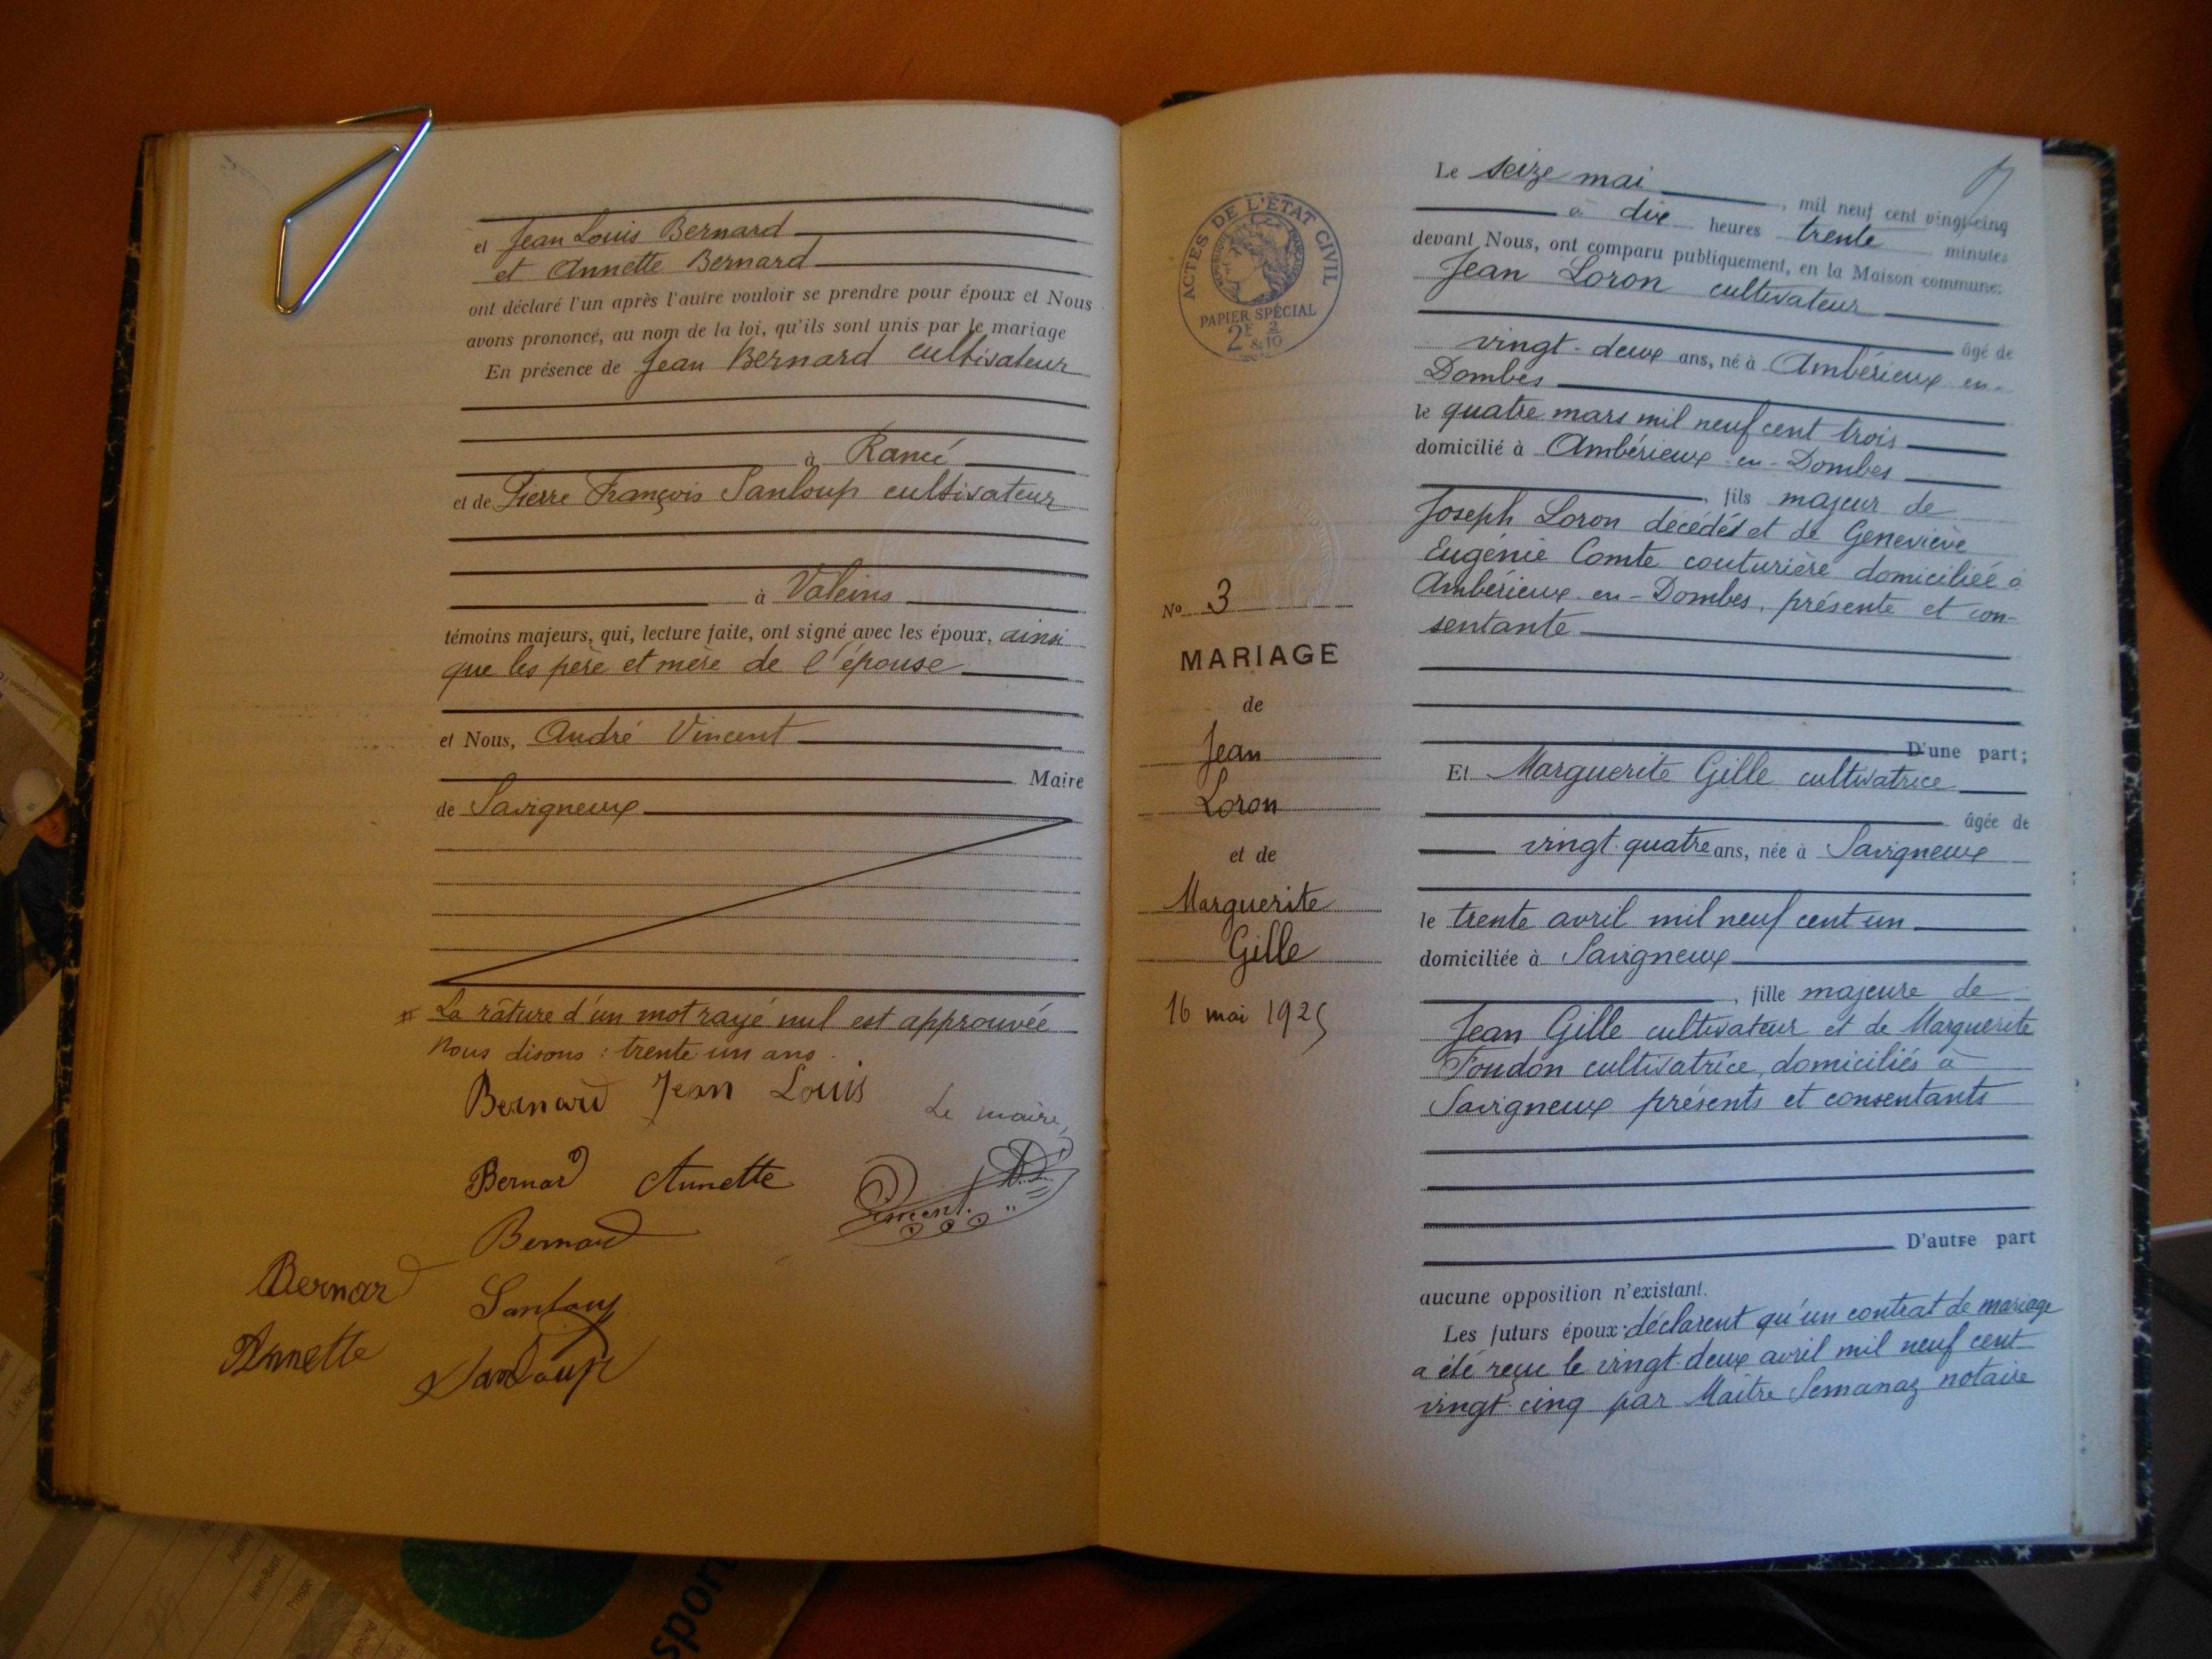 et Jean Louis Bernard
et Annette Bernard
ont déclaré l'un après l'autre vouloir se prendre pour époux et Nous
avons prononcé, au nom de la loi, qu'ils sont unis par le mariage
En présence de Jean Bernard cultivateur
à Rancé
et de Pierre François Sanloup cultivateur
à Valeins
témoins majeurs, qui, lecture faite, ont signé avec les époux, ainsi
que les père et mère de l'épouse
et Nous, André Vincent
Maire
de Savigneux
La râture d'un mot rayé nul est approuvée
Nous disons : trente-un ans.
Bernard Jean Louis
Le maire,
Bernard Annette
Vincent
Bernard
Bernard
Sanloup
Annette
Sanloup
ACTES DE L'ÉTAT CIVIL
PAPIER SPÉCIAL
2F & 2/10
No 3
MARIAGE
de
Jean
Loron
et de
Marguerite
Gille
16 mai 1925
Le seize mai, mil neuf cent vingt-cinq
à dix heures trente minutes
devant Nous, ont comparu publiquement, en la Maison commune:
Jean Loron cultivateur
âgé de
vingt-deux ans, né à Ambérieux-en-
Dombes
le quatre mars mil neuf cent trois
domicilié à Ambérieux-en-Dombes
, fils majeur de
Joseph Loron décédé et de Geneviève
Eugénie Comte couturière domiciliée à
Ambérieux-en-Dombes, présente et con-
sentante
D'une part;
Et Marguerite Gille cultivatrice
âgée de
vingt-quatre ans, née à Savigneux
le trente avril mil neuf cent un
domiciliée à Savigneux
, fille majeure de
Jean Gille cultivateur et de Marguerite
Foudon cultivatrice, domiciliés à
Savigneux présents et consentants
D'autre part
aucune opposition n'existant.
Les futurs époux déclarent qu'un contrat de mariage
a été reçu le vingt-deux avril mil neuf cent
vingt-cinq par Maître Semanaz notaire
sport